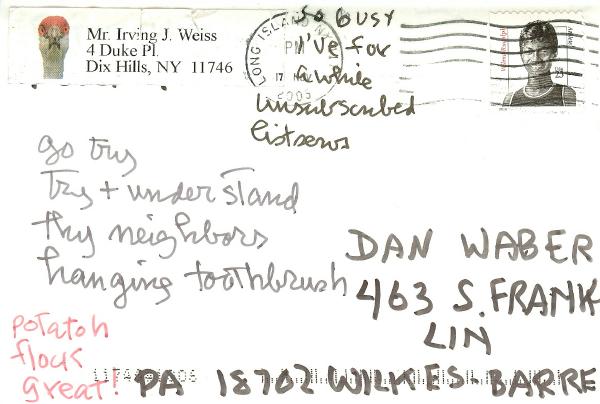 Mr. Irving J. Weiss
4 Duke Pl.
Dix Hills, NY 11746
LONG ISLAND NY
PM
17
2005
23
so busy
I've for
a while
unsubscribed
listservs
go try
try + understand
thy neighbors
hanging toothbrush
DAN WABER
463 S. FRANK
LIN
potatoh
flouk
great!
PA 18702 WILKES-BARRE